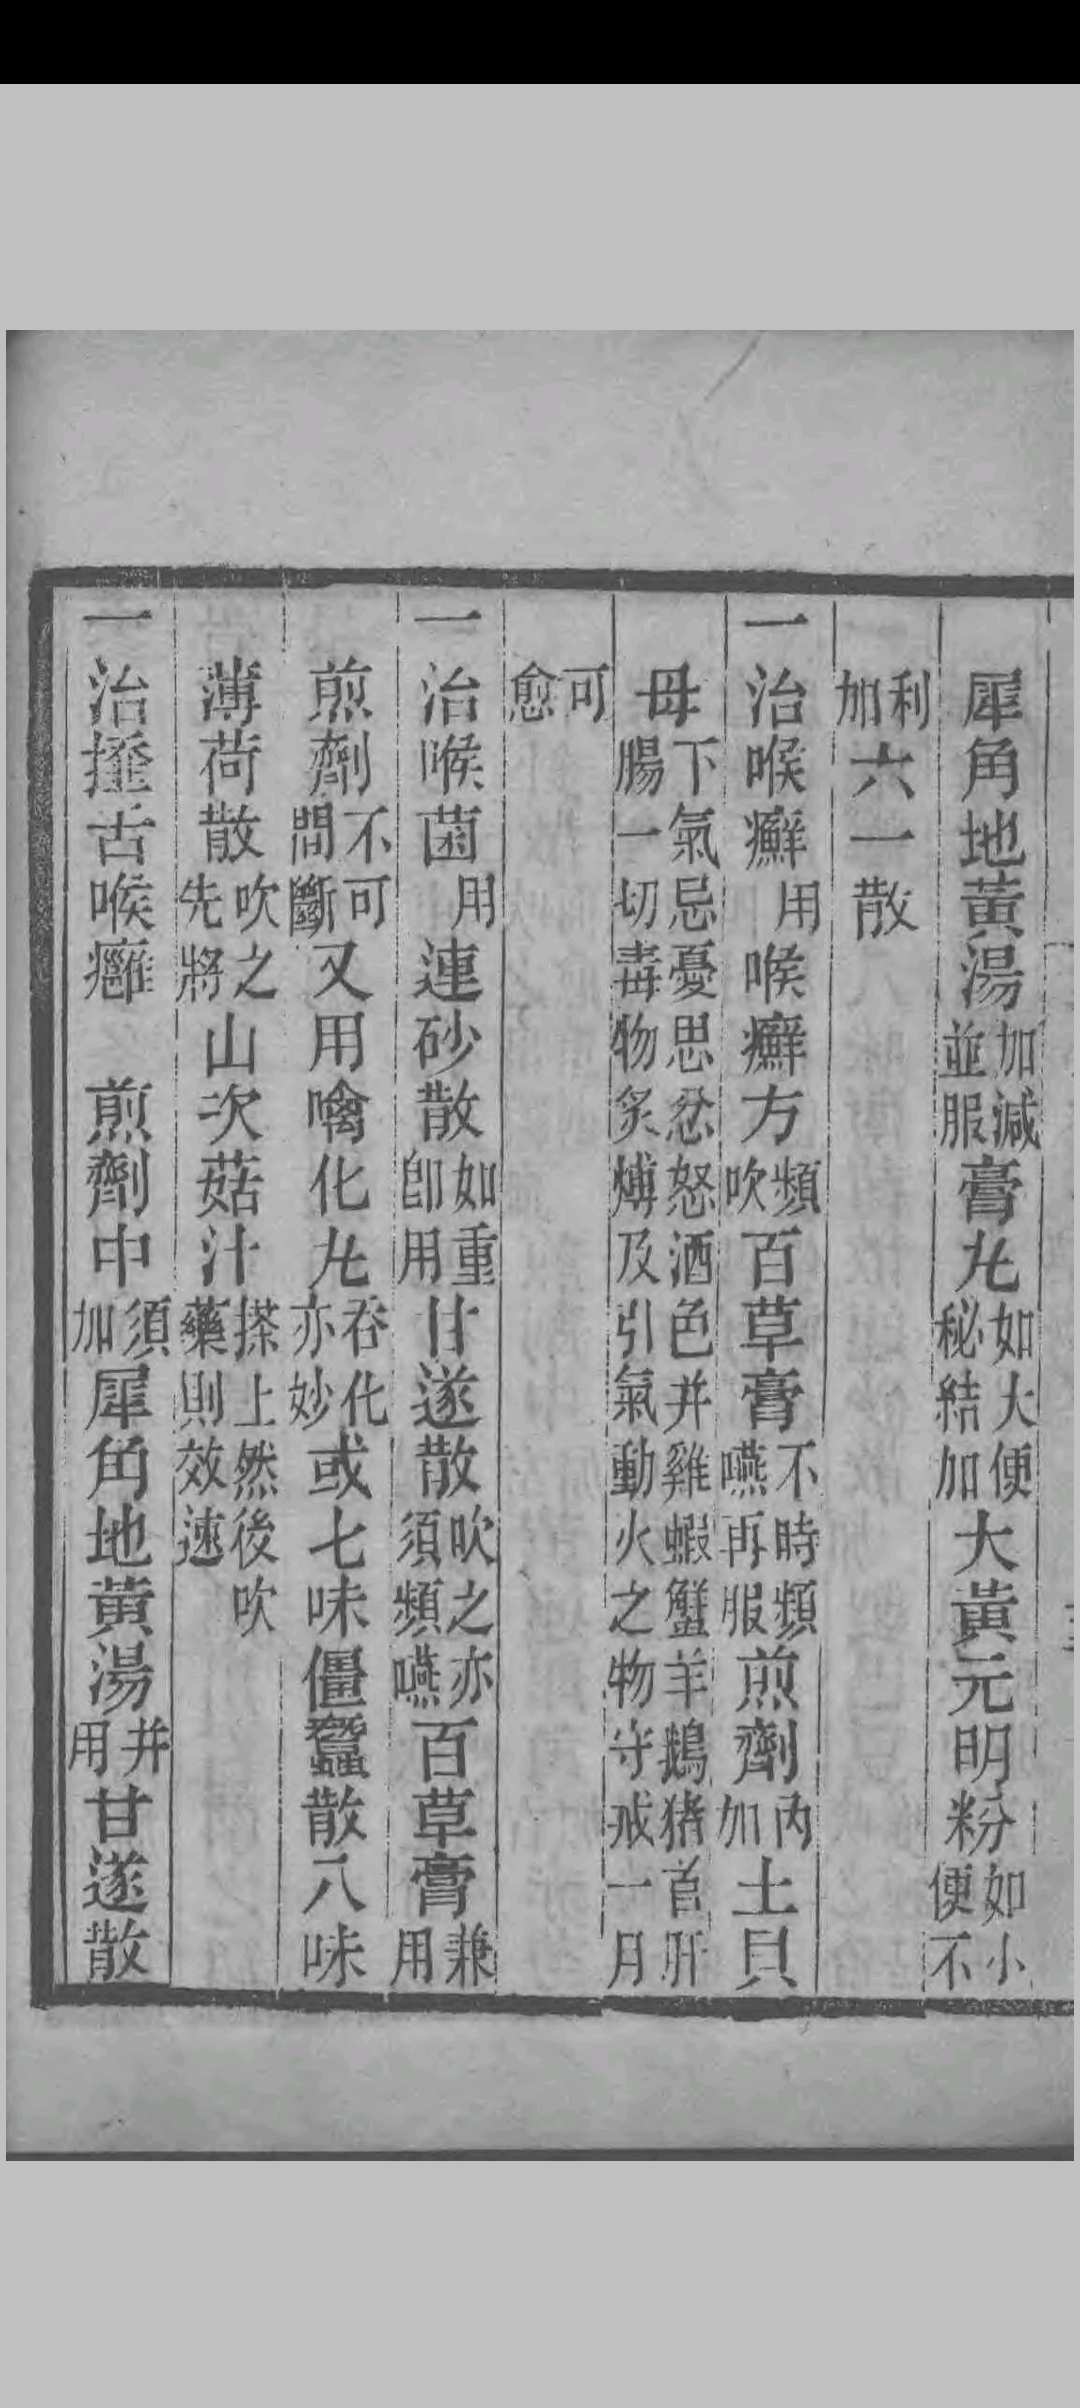 犀角地黃湯加減並服膏丸如大便秘結加大黃元明粉如小便不
利加六一散
一治喉癬用喉癬方頻吹百草膏不時頻嚥再服煎劑內加土貝
母下氣忌憂思忿怒酒色并雞蝦蟹羊鵝猪首肝腸一切毒物炙煿及引氣動火之物守戒一月
可愈
一治喉菌用連砂散如重卽用甘遂散吹之亦須頻嚥百草膏兼用
煎劑不可間斷又用噙化丸吞化亦妙或七味僵蠶散八味
薄荷散吹之先將山次菇汁搽上然後吹藥則效速
一治㩳舌喉癰煎劑中須加犀角地黃湯并用甘遂散